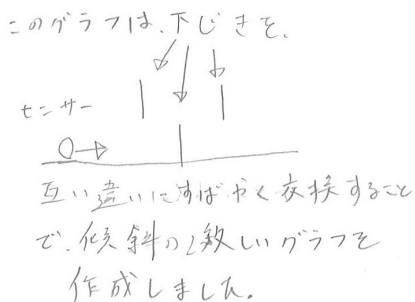 このグラフは、下じきを、
センサー
互い違いにすばやく交換すること
で、傾斜の激しいグラフを
作成しました。